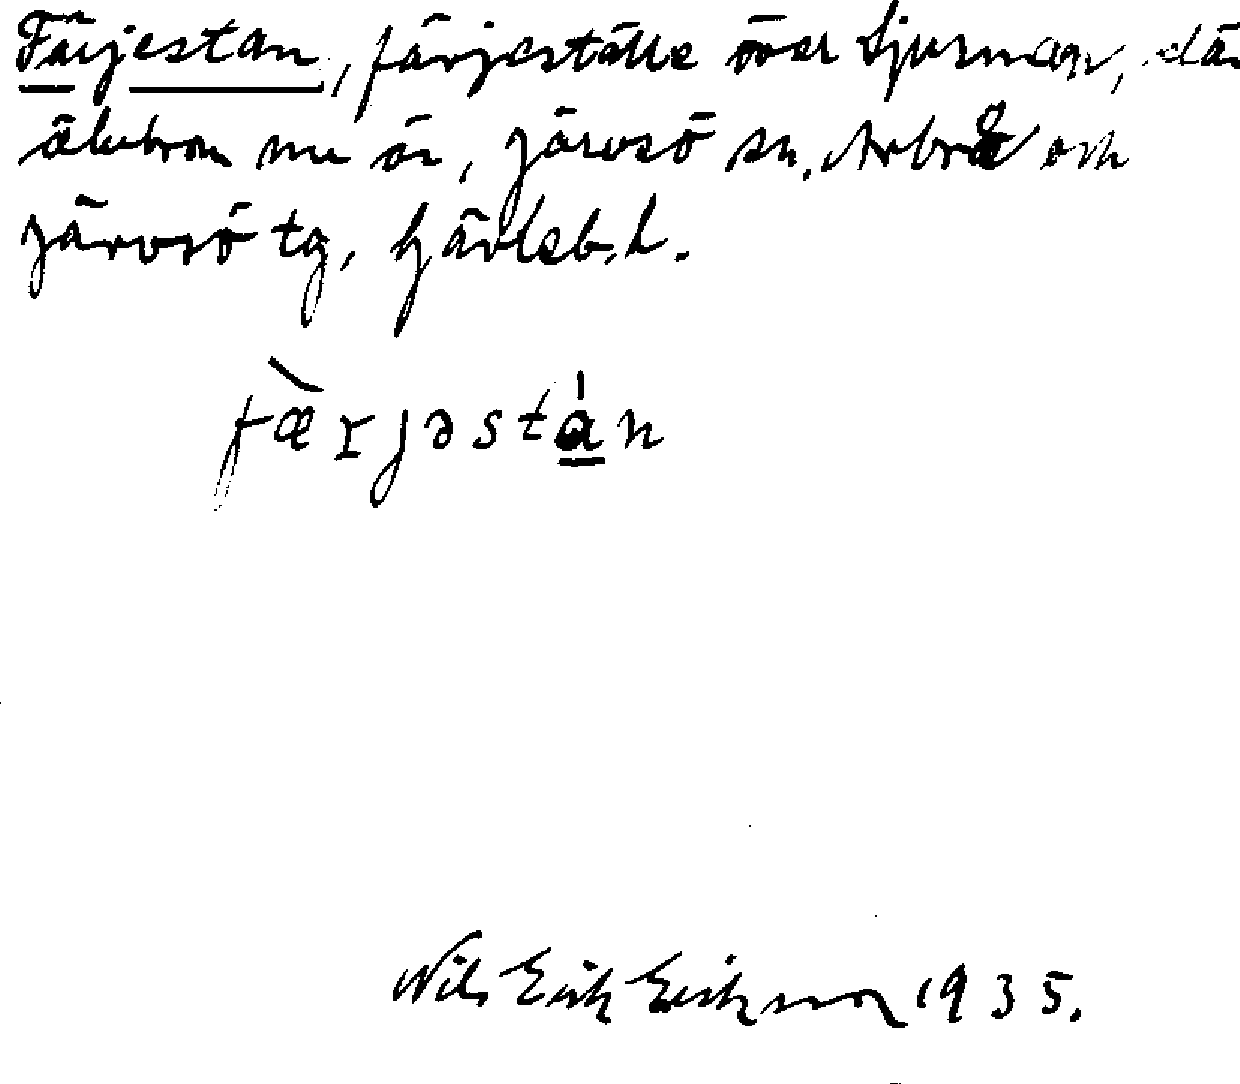 Färjestan, färjeställe över Ljusnan, där
älvbron nu är, Järvsö sn, Arbrå och
Järvsö tg, Gävleb. l.
fæ̀rjəstán
Nils Erik Eriksson 1935.